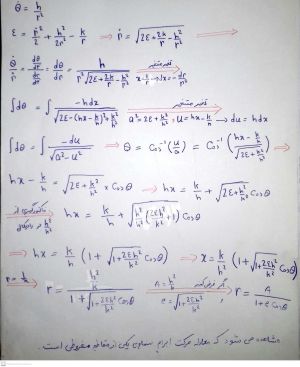 θ̇ = h/r²
ε = ṙ²/2 + h²/2r² - k/r ⇒ ṙ = √(2ε + 2k/r - h²/r²) ⇒
θ̇/ṙ = (dθ/dt)/(dr/dt) = dθ/dr = h/(r²√(2ε + 2k/r - h²/r²)) تغییر متغیر x = 1/r → dx = -dr/r²
∫dθ = ∫ -hdx/√(2ε - (hx - k/h)² + k²/h²) تغییر متغیر a² = 2ε + k²/h², u = hx - k/h → du = hdx
∫dθ = ∫ -du/√(a² - u²) ⇒ θ = Cos⁻¹(u/a) = Cos⁻¹((hx - k/h)/√(2ε + k²/h²)) ⇒
hx - k/h = √(2ε + k²/h²) × Cosθ ⇒ hx = k/h + √(2ε + k²/h²) Cosθ
فاکتورگیری از k²/h² در رادیکال hx = k/h + √(k²/h² (2εh²/k² + 1)) Cosθ
⇒ hx = k/h (1 + √(1 + 2εh²/k²) Cosθ) ⇒ x = k/h² (1 + √(1 + 2εh²/k²) Cosθ)
r = 1/x ⇒ r = (h²/k)/(1 + √(1 + 2εh²/k²) Cosθ) A = h²/k e = √(1 + 2εh²/k²) ⇒ r = A/(1 + e Cosθ)
مشاهده می شود که معادله حرکت اجرام سماوی یکی از مقاطع مخروطی است.